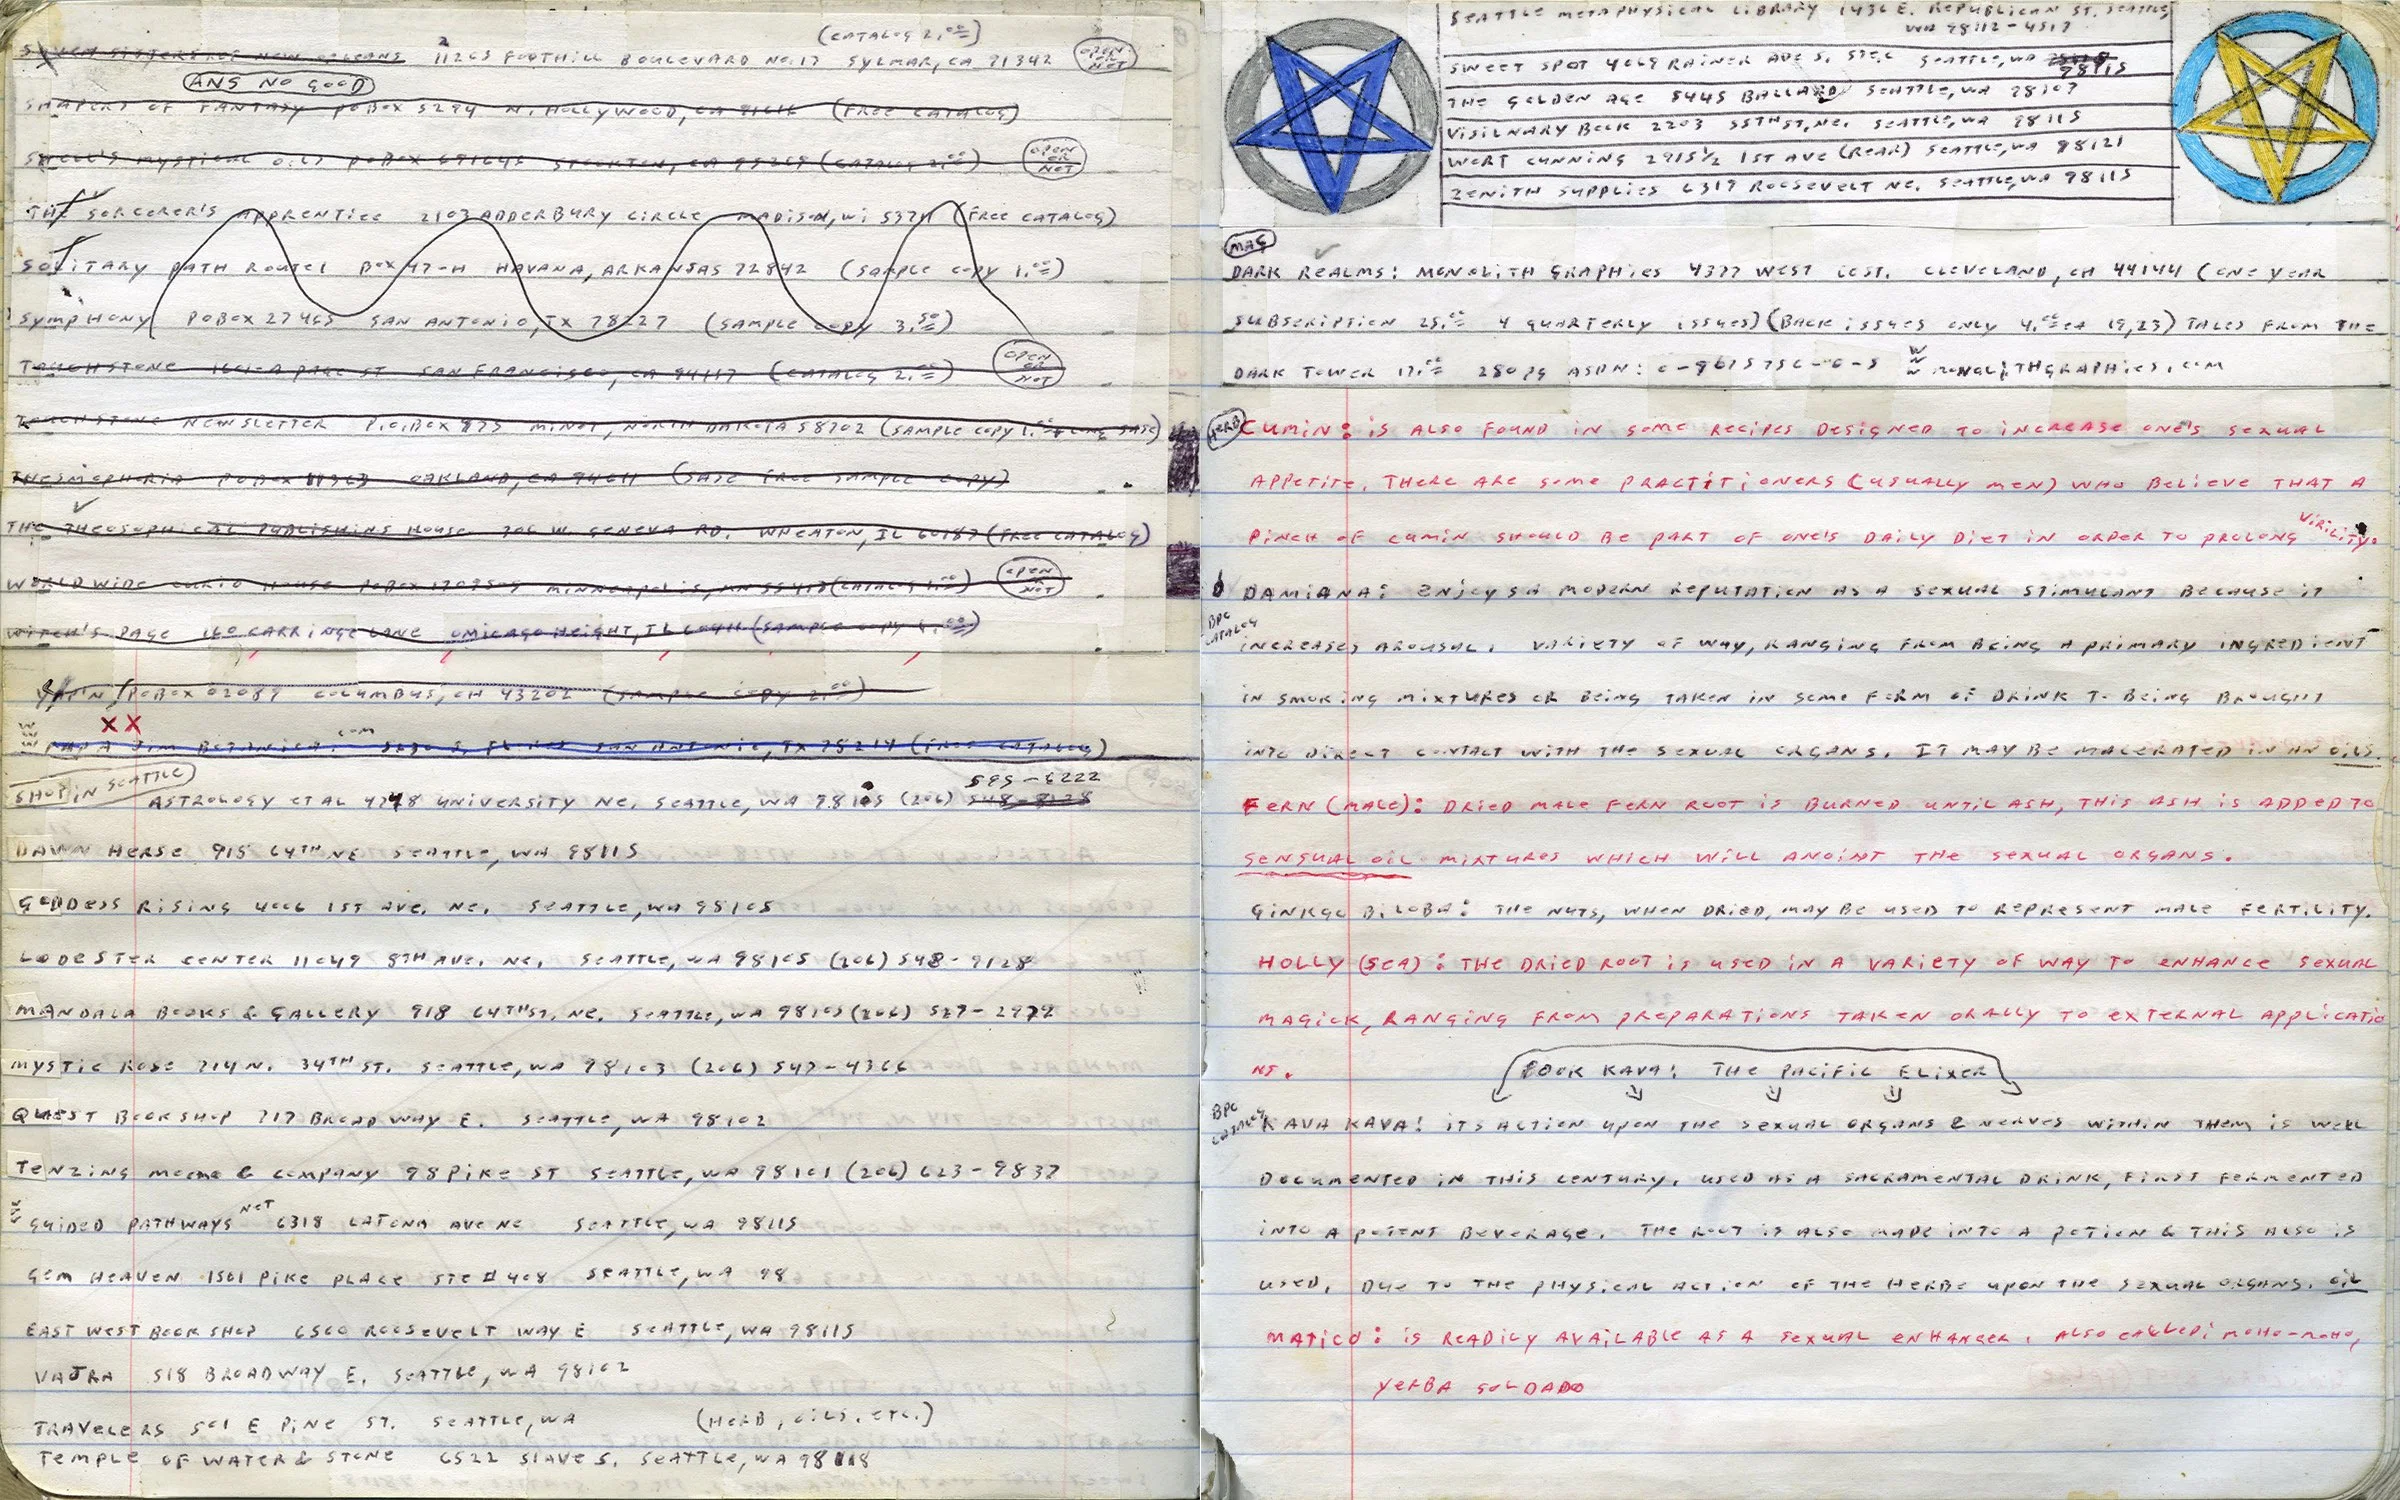 (CATALOG 2.00)
SEVEN SISTERS OF NEW ORLEANS 11203 FOOTHILL BOULEVARD NO.17 SYLMAR, CA 91342 OPEN OR NOT
ANS NO GOOD
SHAPERS OF FANTASY POBOX 5294 N. HOLLYWOOD, CA 91616 (FREE CATALOG)
SHELL'S MYSTICAL OILS POBOX STOCKTON, CA 95269 (CATALOG 2.00) OPEN OR NOT
THE SORCERER'S APPRENTICE 2103 ADDERBURY CIRCLE MADISON, WI 53711 (FREE CATALOG)
SOLITARY PATH ROUTE1 BOX 47-H HAVANA, ARKANSAS 72842 (SAMPLE COPY 1.00)
SYMPHONY POBOX 27465 SAN ANTONIO, TX 78227 (SAMPLE COPY 3.50)
TOUCHSTONE 1601-A PAGE ST SAN FRANCISCO, CA 94117 (CATALOG 2.00) OPEN OR NOT
TOUCHSTONE NEWSLETTER P.O.BOX 873 MINOT, NORTH DAKOTA 58702 (SAMPLE COPY 1.00 & LONG SASE)
THESMOPHORIA POBOX 11363 OAKLAND, CA 94611 (SASE FREE SAMPLE COPY)
THE THEOSOPHICAL PUBLISHING HOUSE 306 W. GENEVA RD. WHEATON, IL 60187 (FREE CATALOG)
WORLD WIDE CURIO HOUSE POBOX 1709505 MINNEAPOLIS, MN 55417 (CATALOG 1.00) OPEN OR NOT
WITCH'S PAGE 160 CARRINGE LANE CHICAGO HEIGHT, IL 60411 (SAMPLE COPY 1.00)
POBOX 02089 COLUMBUS, OH 43202 (SAMPLE COPY 2.00)
XX
WWW PAPA JIM BOTANICA. COM 5630 S. FLORES SAN ANTONIO, TX 78214 (FREE CATALOG)
SHOP IN SEATTLE
595-6222
ASTROLOGY ET AL 4748 UNIVERSITY NE. SEATTLE, WA 98105 (206) 548-8128
DAWN HORSE 915 64TH NE SEATTLE, WA 98115
GODDESS RISING 4006 1ST AVE. NE. SEATTLE, WA 98105
LODESTER CENTER 11049 8TH AVE. NE. SEATTLE, WA 98105 (206) 548-9128
MANDALA BOOKS & GALLERY 918 64TH ST. NE. SEATTLE, WA 98105 (206) 527-2979
MYSTIC ROSE 714 N. 34TH ST. SEATTLE, WA 98103 (206) 547-4366
QUEST BOOKSHOP 717 BROADWAY E. SEATTLE, WA 98102
TENZING MOMO & COMPANY 98 PIKE ST SEATTLE, WA 98101 (206) 623-9837
WWW GUIDED PATHWAYS NET 6318 LATONA AVE NE SEATTLE, WA 98115
GEM HEAVEN 1501 PIKE PLACE STE # 408 SEATTLE, WA 98
EAST WEST BOOK SHOP 6500 ROOSEVELT WAY E SEATTLE, WA 98115
VAJRA 518 BROADWAY E. SEATTLE, WA 98102
TRAVELERS 501 E PINE ST. SEATTLE, WA (HERB, OILS, ETC.)
TEMPLE OF WATER & STONE 6522 51 AVE S. SEATTLE, WA 98118
SEATTLE METAPHYSICAL LIBRARY 1436 E. REPUBLICAN ST. SEATTLE,
WA 98112-4517
SWEET SPOT 4069 RAINER AVE S. STE.C SEATTLE, WA 98115
THE GOLDEN AGE 5445 BALLARD SEATTLE, WA 98107
VISIONARY BOOK 2203 55TH ST, NE. SEATTLE, WA 98115
WORT CUNNING 2915½ 1ST AVE (REAR) SEATTLE, WA 98121
ZENITH SUPPLIES 6319 ROOSEVELT NE. SEATTLE, WA 98115
MAG
DARK REALMS: MONOLITH GRAPHICS 4377 WEST COST. CLEVELAND, OH 44144 (ONE YEAR
SUBSCRIPTION 25.00 4 QUARTERLY ISSUES) (BACK ISSUES ONLY 4.00 EA 19,23) TALES FROM THE
DARK TOWER 17.00 280 PG ASDN: 0-9675756-0-5 WWW MONOLITHGRAPHICS.COM
HERB
CUMIN: IS ALSO FOUND IN SOME RECIPES DESIGNED TO INCREASE ONE'S SEXUAL
APPETITE. THERE ARE SOME PRACTITIONERS (USUALLY MEN) WHO BELIEVE THAT A
PINCH OF CUMIN SHOULD BE PART OF ONE'S DAILY DIET IN ORDER TO PROLONG VIRILITY.
DAMIANA: ENJOYS A MODERN REPUTATION AS A SEXUAL STIMULANT BECAUSE IT
BPC CATALOG
INCREASES AROUSAL. VARIETY OF WAY, RANGING FROM BEING A PRIMARY INGREDIENT
IN SMOKING MIXTURES OR BEING TAKEN IN SOME FORM OF DRINK TO BEING BROUGHT
INTO DIRECT CONTACT WITH THE SEXUAL ORGANS. IT MAY BE MACERATED IN AN OILS.
FERN (MALE): DRIED MALE FERN ROOT IS BURNED UNTIL ASH, THIS ASH IS ADDED TO
SENSUAL OIL MIXTURES WHICH WILL ANOINT THE SEXUAL ORGANS.
GINKGO BILOBA: THE NUTS, WHEN DRIED, MAY BE USED TO REPRESENT MALE FERTILITY.
HOLLY (SEA): THE DRIED ROOT IS USED IN A VARIETY OF WAY TO ENHANCE SEXUAL
MAGICK, RANGING FROM PREPARATIONS TAKEN ORALLY TO EXTERNAL APPLICATIO
NS.
BOOK KAVA: THE PACIFIC ELIXER
BPC CATALOG
KAVA KAVA: ITS ACTION UPON THE SEXUAL ORGANS & NERVES WITHIN THEM IS WELL
DOCUMENTED IN THIS CENTURY. USED AS A SACRAMENTAL DRINK, FIRST FERMENTED
INTO A POTENT BEVERAGE. THE ROOT IS ALSO MADE INTO A POTION & THIS ALSO IS
USED. DUE TO THE PHYSICAL ACTION OF THE HERBE UPON THE SEXUAL ORGANS. OIL
MATICO: IS READILY AVAILABLE AS A SEXUAL ENHANCER. ALSO CALLED: MOHO-MOHO,
YERBA SOLDADO